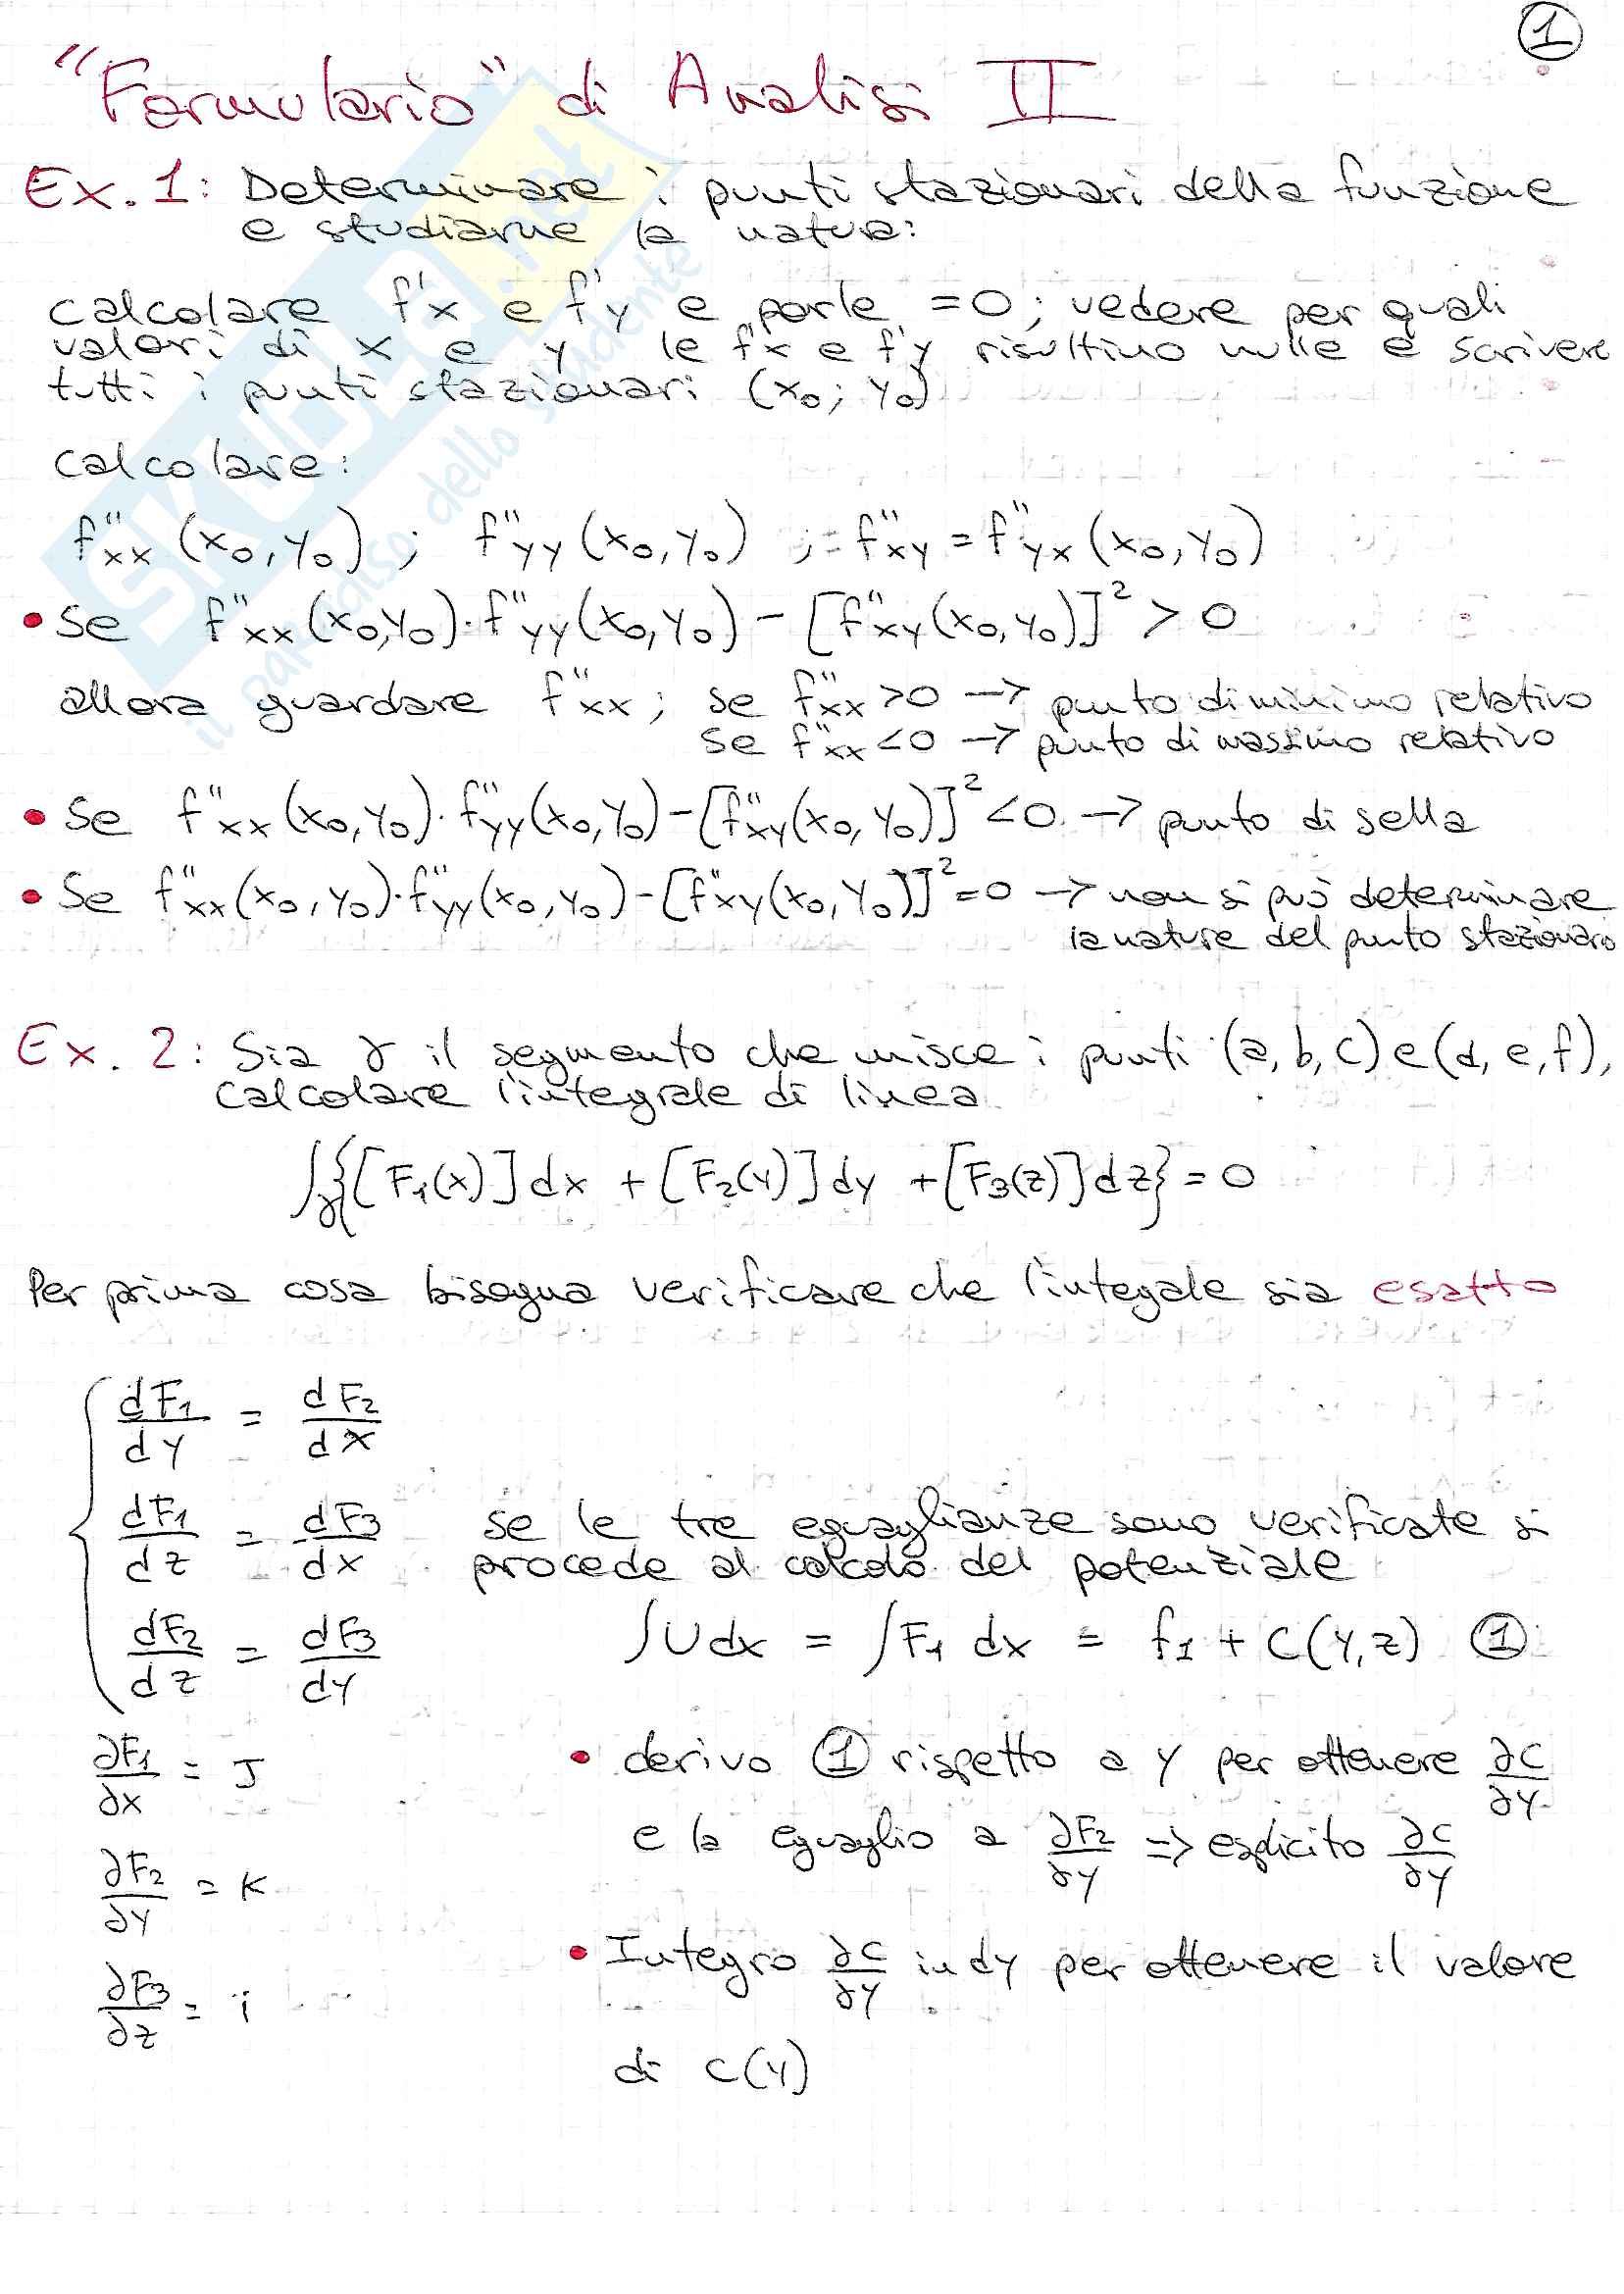 1
"Formulario" di Analisi II
Ex. 1: Determinare i punti stazionari della funzione
e studiarne la natura:
calcolare f'x e f'y e porle =0; vedere per quali
valori di x e y le f'x e f'y risultino nulle e scrivere
tutti i punti stazionari (x₀; y₀)
calcolare:
f''xx (x₀, y₀) ; f''yy (x₀, y₀) ; f''xy = f''yx (x₀, y₀)
• Se f''xx (x₀, y₀) · f''yy (x₀, y₀) - [f''xy (x₀, y₀)]² > 0
allora guardare f''xx ; se f''xx >0 → punto di minimo relativo
se f''xx <0 → punto di massimo relativo
• Se f''xx (x₀, y₀) · f''yy (x₀, y₀) - [f''xy (x₀, y₀)]² <0 → punto di sella
• Se f''xx (x₀, y₀) · f''yy (x₀, y₀) - [f''xy (x₀, y₀)]² =0 → non si può determinare
la natura del punto stazionario
Ex. 2: Sia γ il segmento che unisce i punti (a, b, c) e (d, e, f),
calcolare l'integrale di linea
∫γ {[F₁(x)] dx + [F₂(y)] dy + [F₃(z)] dz} = 0
Per prima cosa bisogna verificare che l'integale sia esatto
dF₁/dy = dF₂/dx
dF₁/dz = dF₃/dx
dF₂/dz = dF₃/dy
se le tre eguaglianze sono verificate si
procede al calcolo del potenziale
∫U dx = ∫F₁ dx = f₁ + C(y, z) ①
∂F₁/∂x = J
∂F₂/∂y = K
∂F₃/∂z = i
• derivo ① rispetto a y per ottenere ∂C/∂y
e la eguaglio a ∂F₂/∂y => esplicito ∂C/∂y
• Integro ∂C/∂y in dy per ottenere il valore
di C(y)
SKUOLA.net
il paradiso dello studente